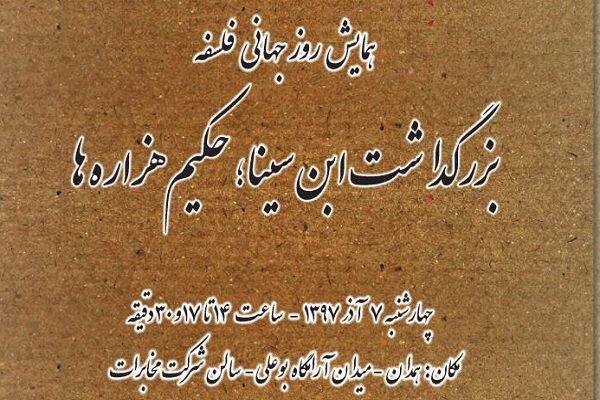 همایش روز جهانی فلسفه
بزرگداشت ابن سینا؛ حکیم هزاره ها
چهارشنبه ۷ آذر ۱۳۹۷ - ساعت ۱۴ تا ۱۷و۳۰دقیقه
مکان: همدان - میدان آرامگاه بوعلی - سالن شرکت مخابرات